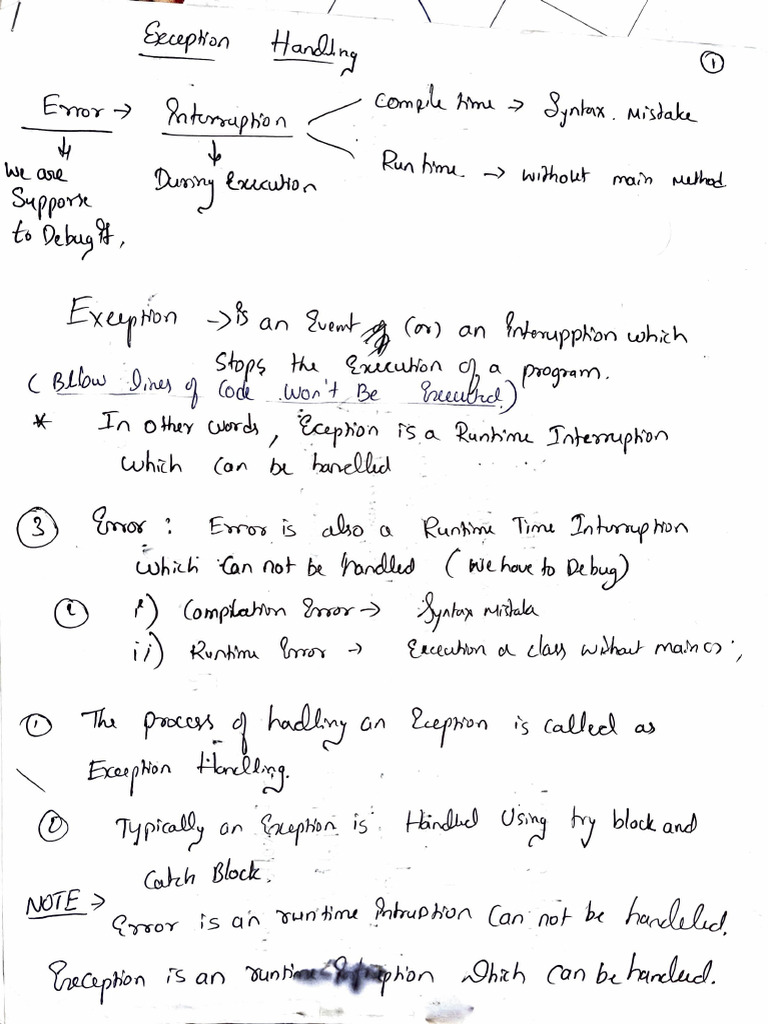 Exception Handling
1
Error → Interruption
Compile time → Syntax. Mistake
Run time. → without main Method
We are
Supporse
to Debug it,
During Execution
Exeeption → is an Event (or) an Interupption which
Stops the Execution of a program.
(Bellow lines of Code Won't Be Executed.)
* In other words, Eception is a Runtime Interruption
which can be hanelled
3 Error : Error is also a Runtime Time Interruption
which Can not be handled (we have to Debug)
i) Compilation Error → Syntax mistake
ii) Runtime Error → Execution a class without main();
1 The process of hadling an Eception is called as
Exception Handling.
Typically an Exception is Handled Using try block and
Catch Block.
NOTE →
Error is an runtime Intruption Can not be handeled.
Exeception is an runtime which can be handled.